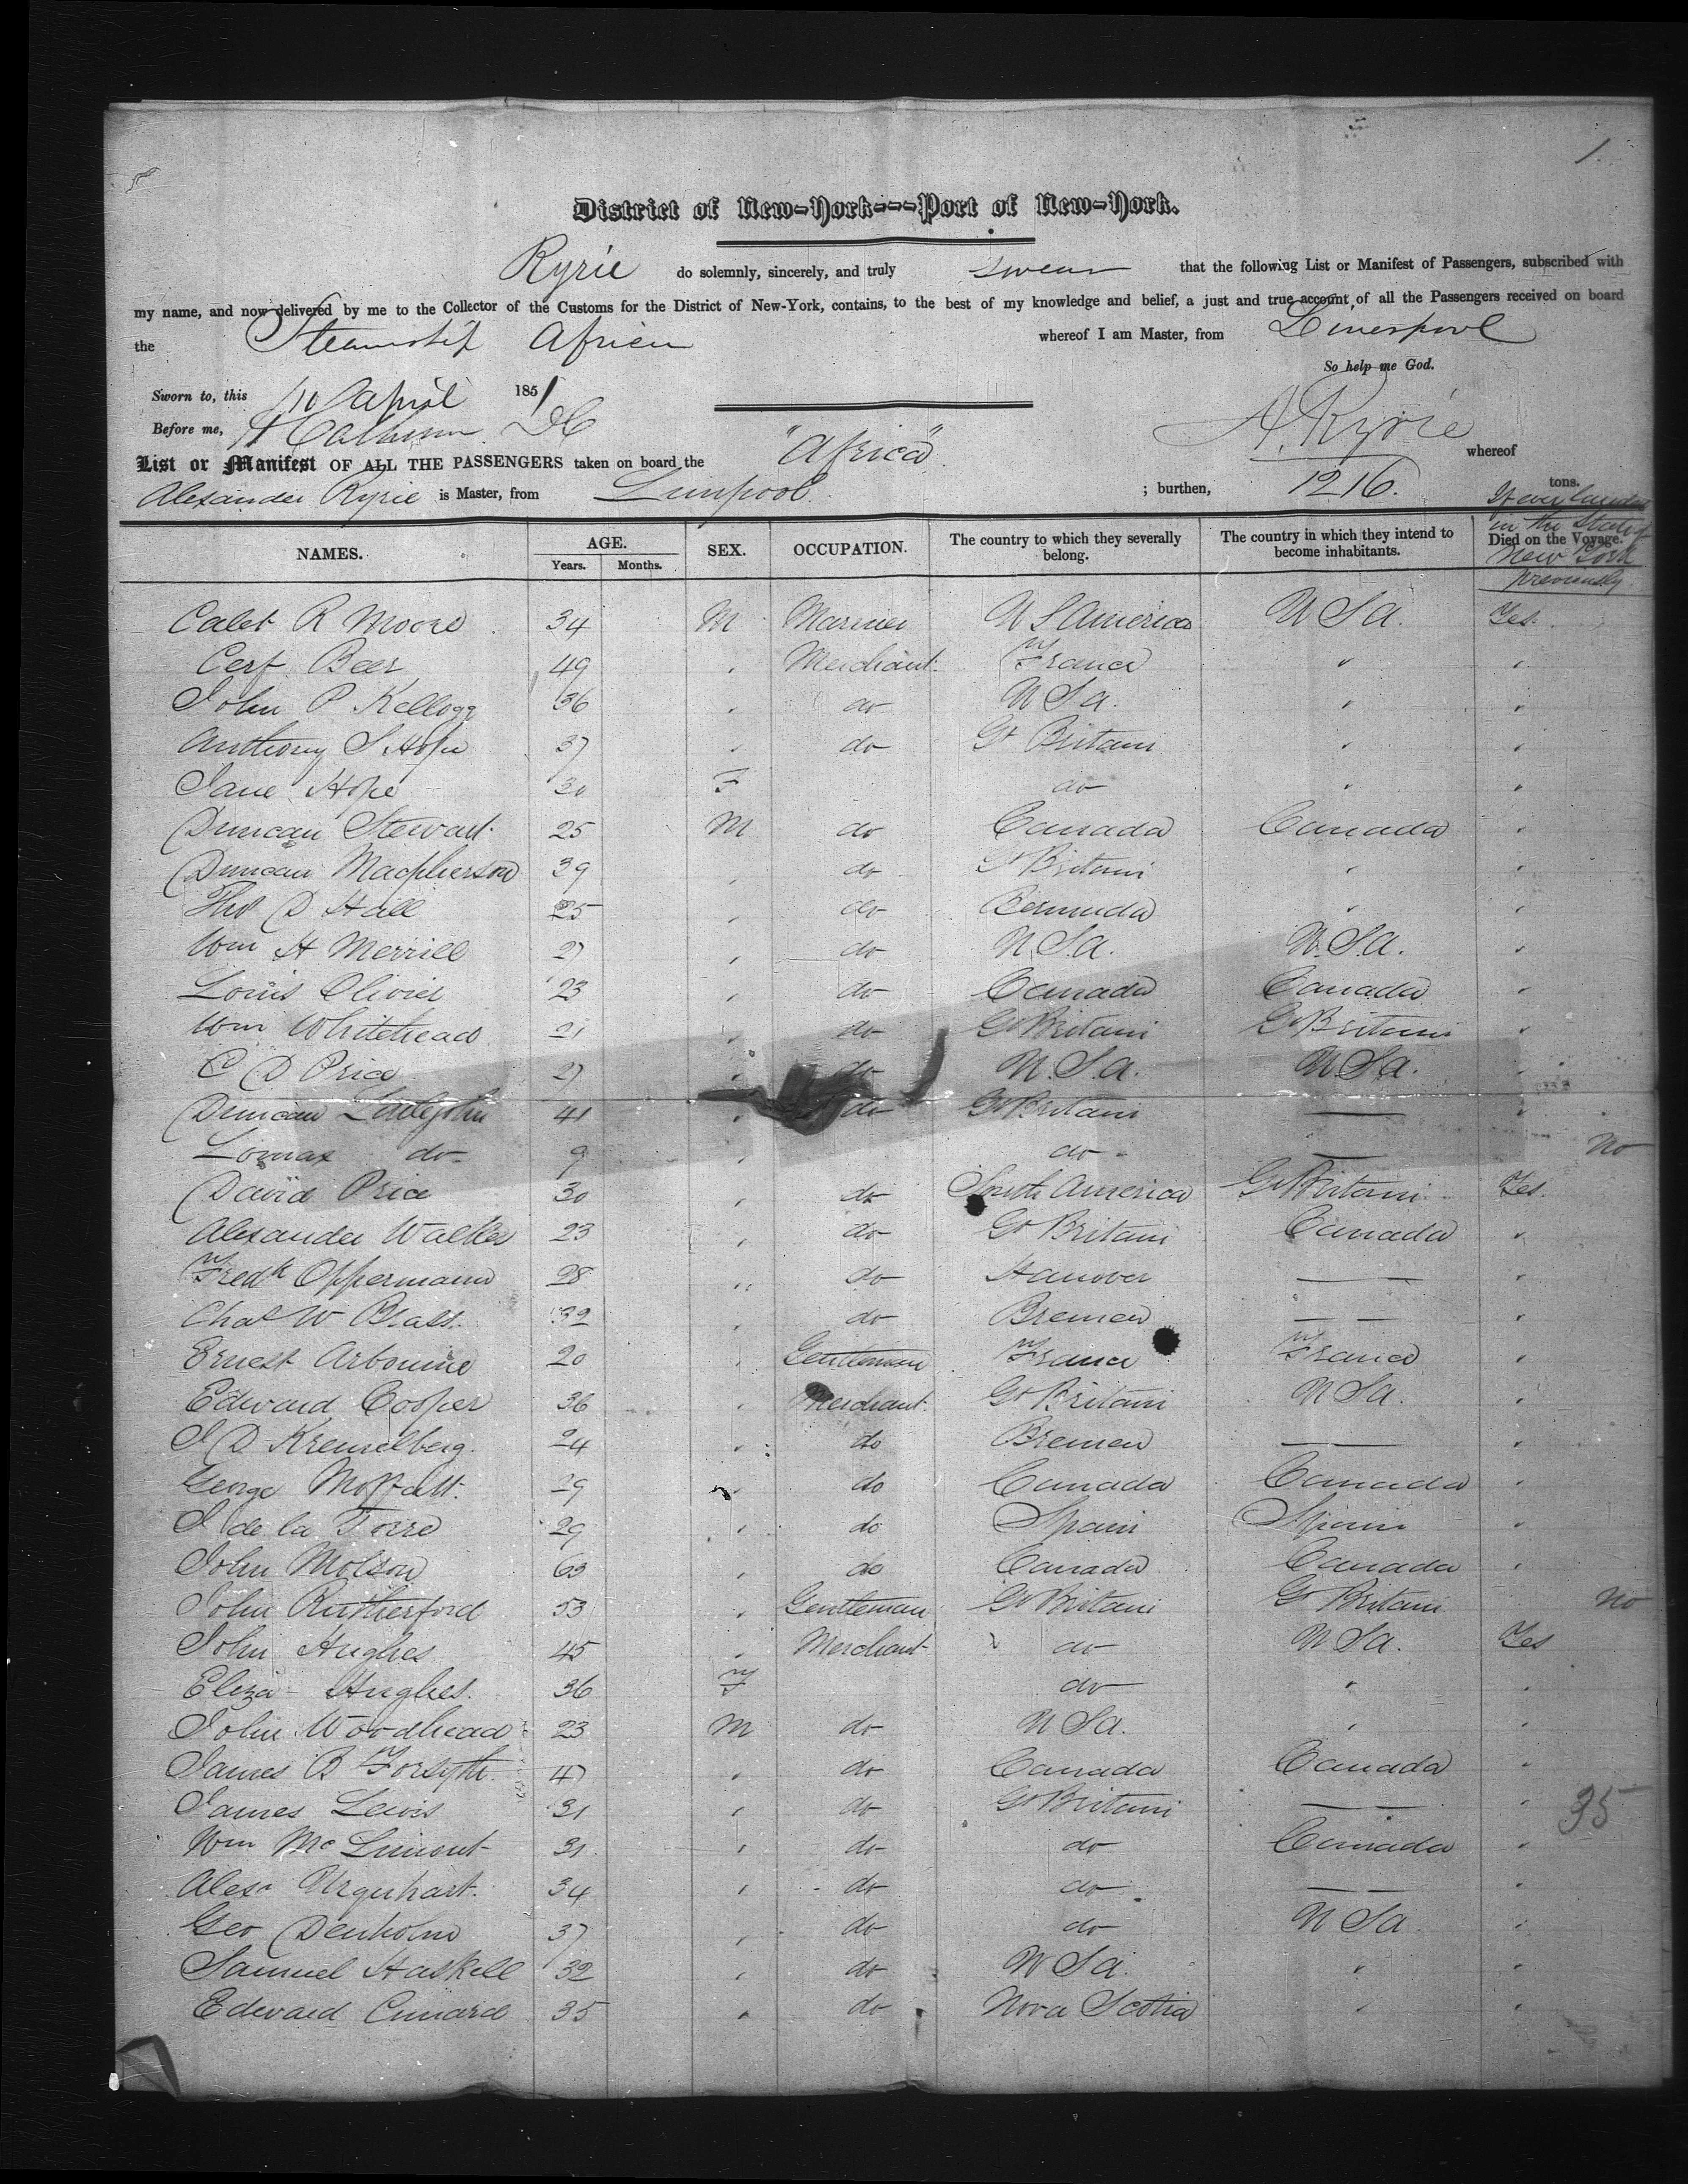 1.
District of New-York---Port of New-York.
Ryrie do solemnly, sincerely, and truly swear that the following List or Manifest of Passengers, subscribed with
my name, and now delivered by me to the Collector of the Customs for the District of New-York, contains, to the best of my knowledge and belief, a just and true account of all the Passengers received on board
the Steamship Africa whereof I am Master, from Liverpool
So help me God.
Sworn to, this 10 April 1851
Before me, Calhoun A. Ryrie
List or Manifest OF ALL THE PASSENGERS taken on board the "Africa" whereof
Alexander Ryrie is Master, from Liverpool ; burthen, 1216. tons.
If ever landed in the State of New York previously
NAMES. AGE. Years. Months. SEX. OCCUPATION. The country to which they severally belong. The country in which they intend to become inhabitants. Died on the Voyage.
Caleb R Moore 34 M Mariner U S America U S A. Yes.
Cerf Beer 49 " Merchant France " "
John P Kellogg 36 " do U S a. " "
Anthony S Hope 37 " do Gt Britain " "
Jane Hope 30 F do " "
Duncan Stewart 25 M do Canada Canada "
Duncan Macpherson 39 " do Gt Britain " "
Thos D Hall 25 " do Bermuda " "
Wm H Merrill 27 " do U.S.a. U.S.A. "
Louis Olivier 23 " do Canada Canada "
Wm Whitehead 21 " do Gt Britain Gt Britain "
C D Price 27 " do U.S.a. U.S.a. "
Duncan Littlejohn 41 " do Gt Britain — "
Lomax do 9 " do — No
David Price 30 " do South America Gt Britain Yes.
Alexander Walker 23 " do Gt Britain Canada "
Fredk Oppermann 28 " do Hanover — "
Chas W Blass. 32 " do Bremen — "
Ernest 20 " Gentleman France France "
Edward Cooper 36 " Merchant Gt Britain U S a. "
J D Kremelberg. 24 " do Bremen — "
George Moffatt. 29 " do Canada Canada "
J de la Torre 29 " do Spain Spain "
John Molson 63 " do Canada Canada "
John Rutherford 53 " Gentleman Gt Britain Gt Britain No
John Hughes 45 " Merchant do U S a. Yes
Eliza Hughes. 36 F do " "
John Woodhead 23 M do U S a. " "
James B Forsyth. 47 " do Canada Canada "
James Lewis 31 " do Gt Britain — "
35
Wm McLimont 31 " do do Canada "
Alexr Urquhart. 34 " do do — "
Geo Denholm 37 " do do U S a. "
Samuel Haskell 32 " do U S a. " "
Edward Cunard 35 " do Nova Scotia " "